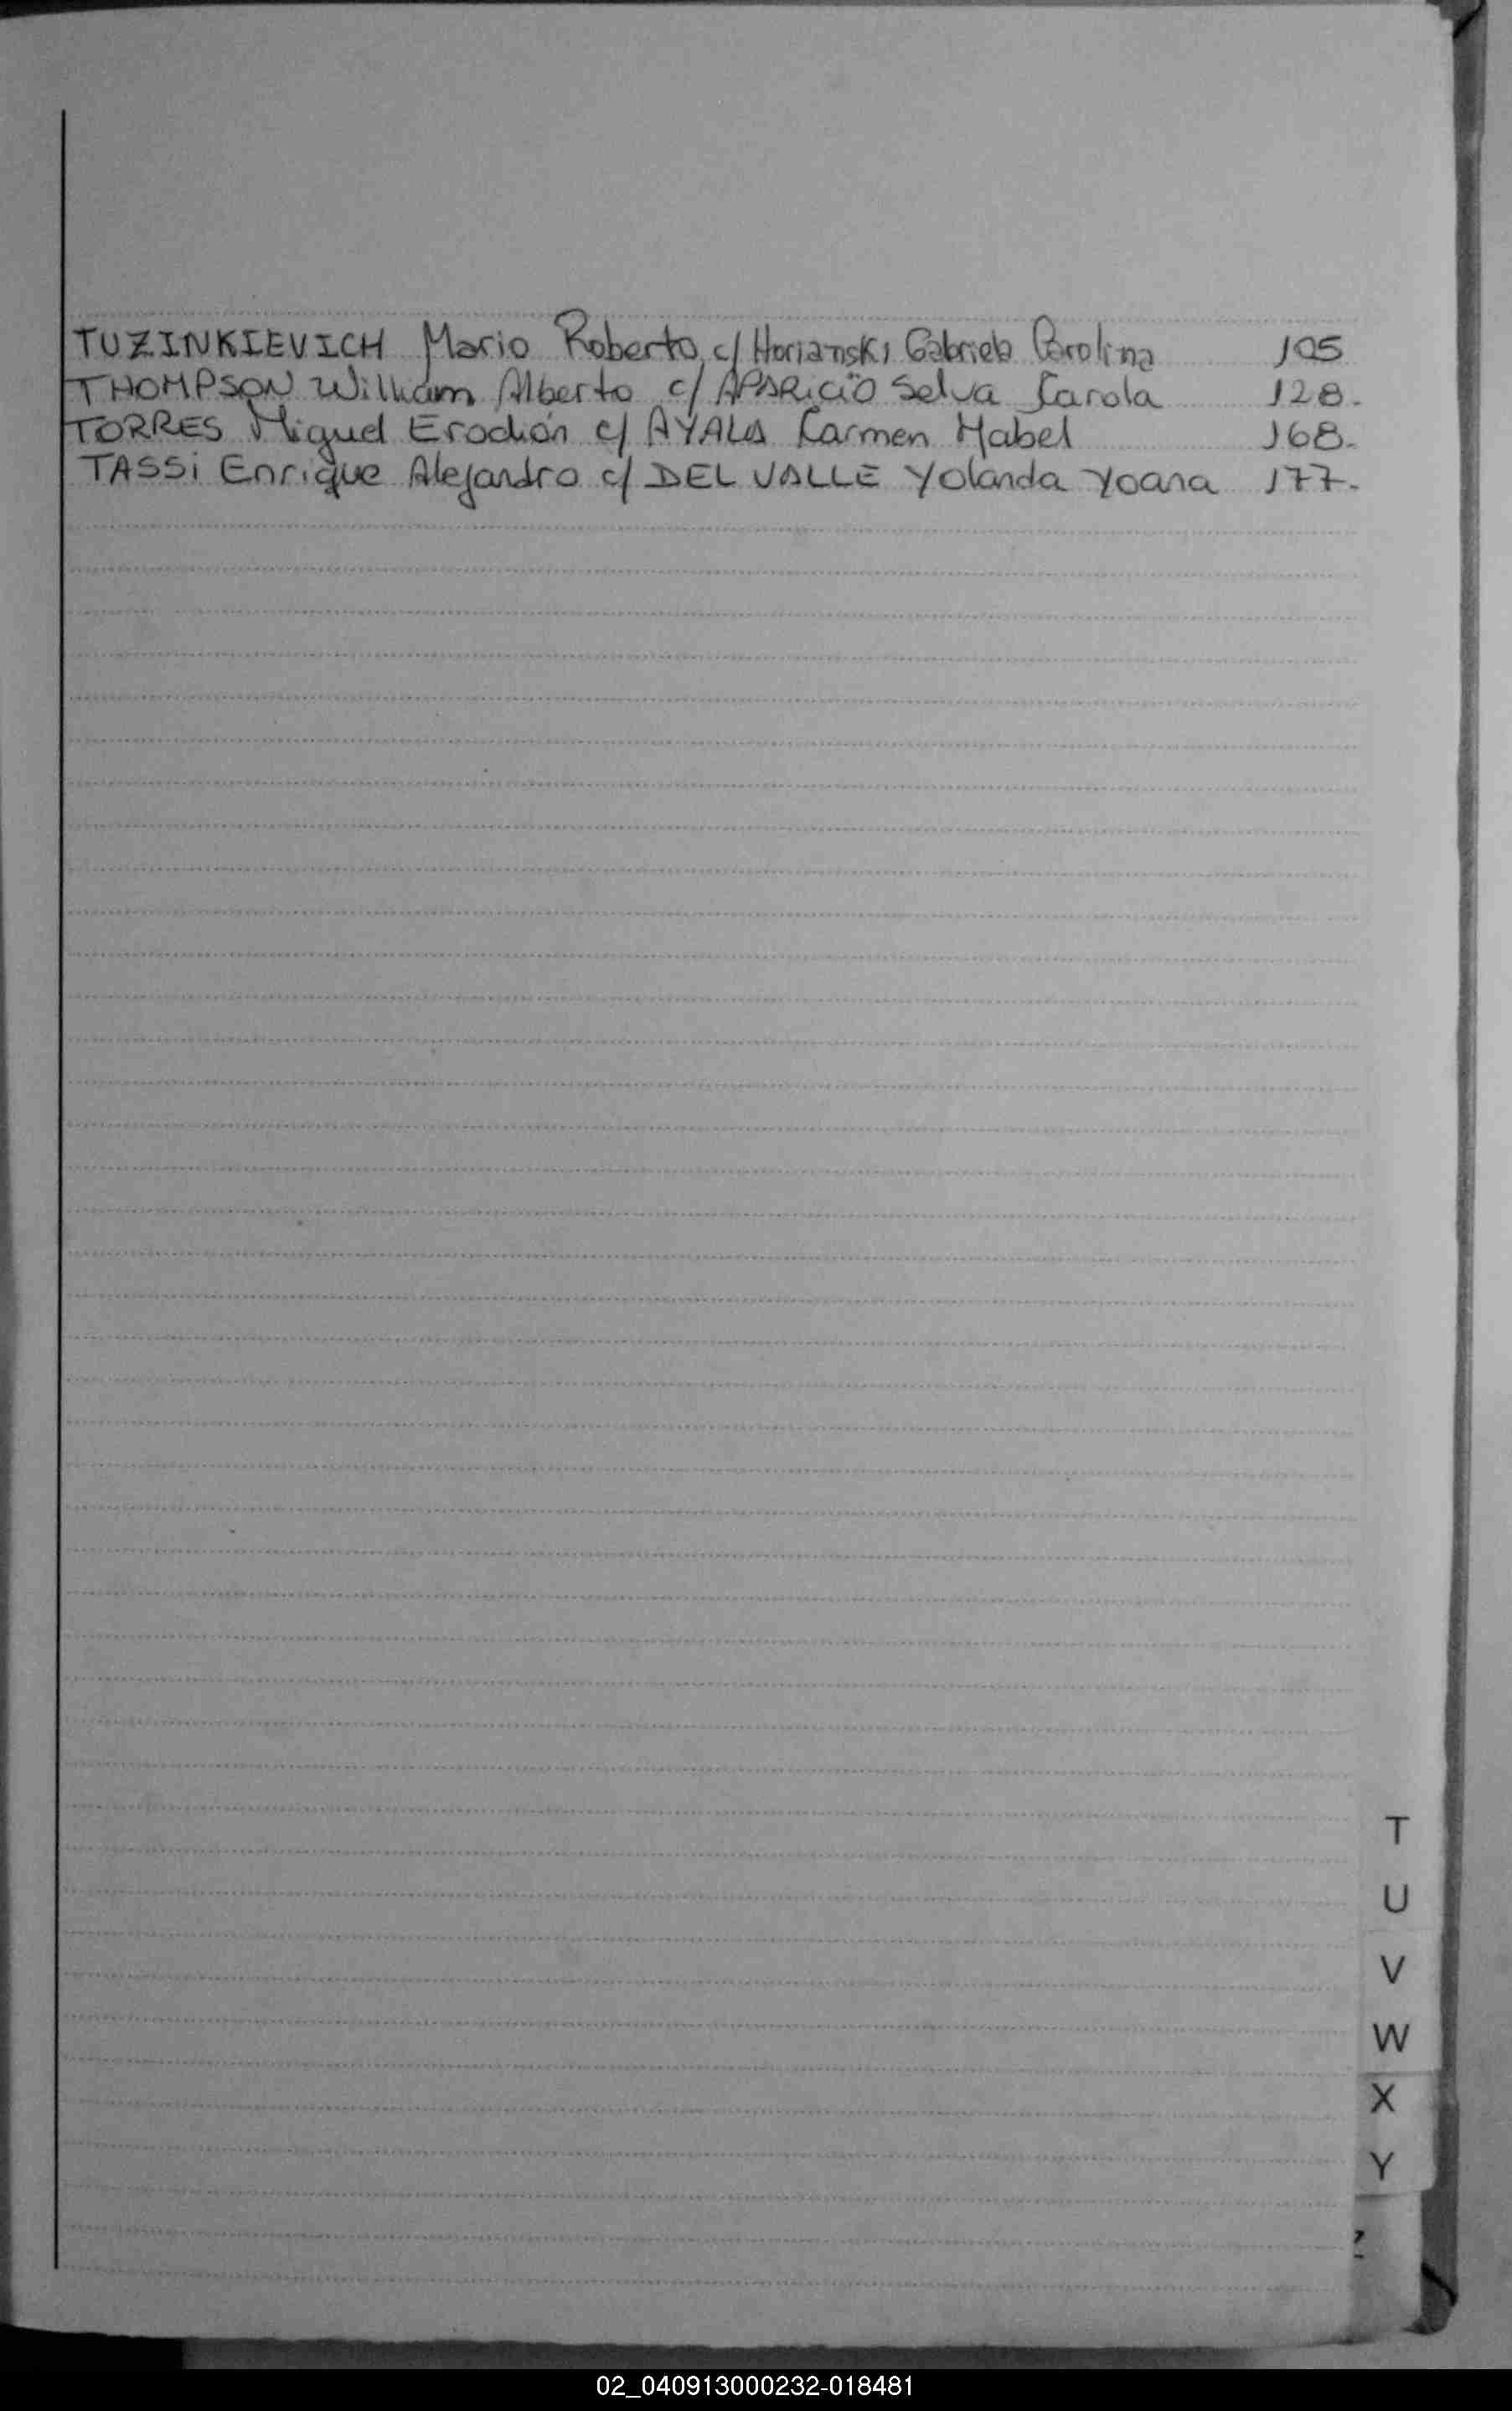 TUZINKIEVICH Mario Roberto c/ Horianski Gabriela Carolina 105
THOMPSON William Alberto c/ APARICIO Selva Carola 128.
TORRES Miguel Erodión c/ AYALA Carmen Mabel 168.
TASSi Enrique Alejandro c/ DEL VALLE Yolanda Yoana 177.
T
U
V
W
X
Y
Z
02_040913000232-018481